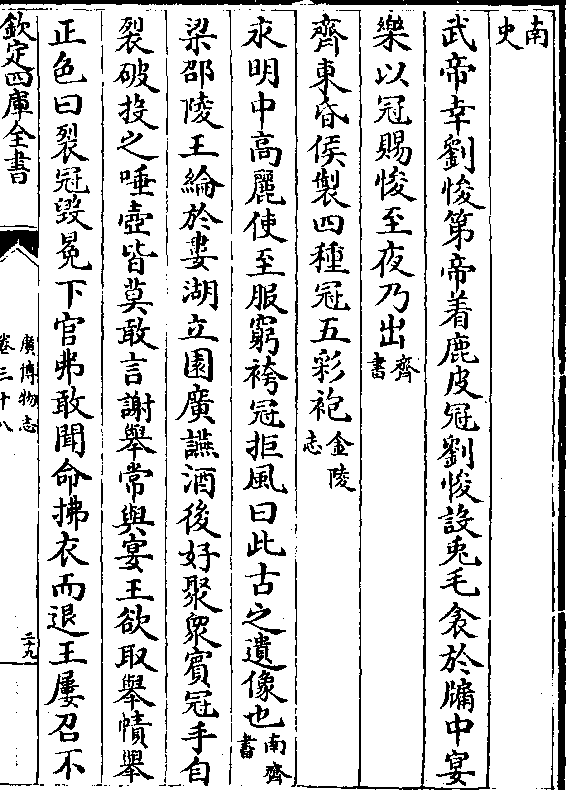 南史
武帝幸劉悛第帝着鹿皮冠劉悛設兎毛衾於牖中宴
樂以冠賜悛至夜乃出齊書
齊東昏侯製四種冠五彩袍金陵志
永明中高麗使至服窮袴冠拒風曰此古之遺像也南齊書
梁邵陵王綸於婁湖立園廣讌酒後好聚衆賓冠手自
裂破投之唾壺皆莫敢言謝舉常與宴王欲取舉幘舉
正色曰裂冠毀冕下官弗敢聞命拂衣而退王屢召不
欽定四庫全書
廣博物志
卷三十八
二十九